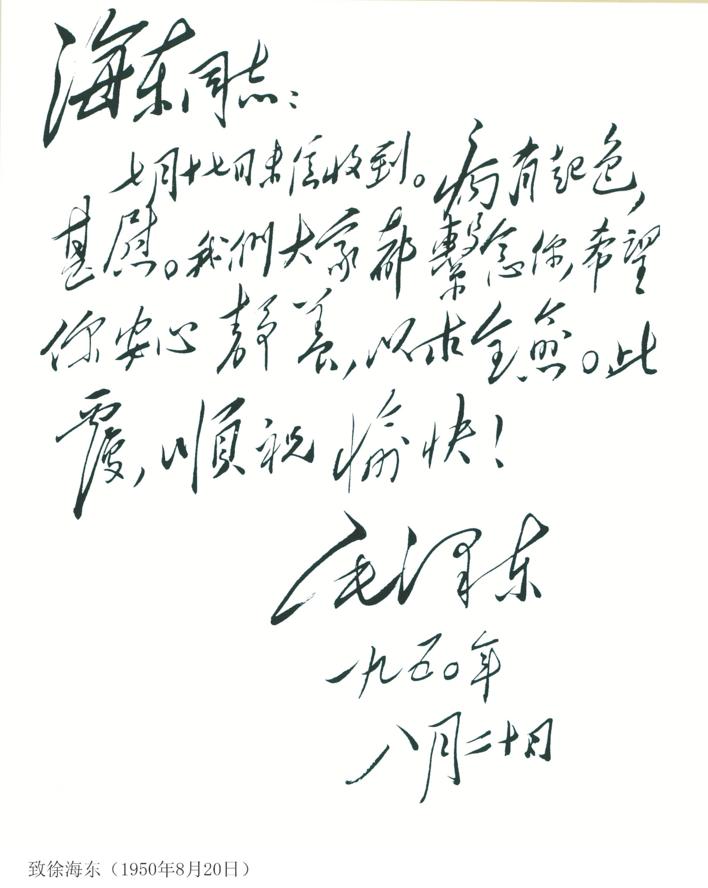 海东同志：
七月十七日来信收到。病有起色，
甚慰。我们大家都繫念你，希望
你安心静养，以求全愈。此
覆，顺祝愉快！
毛泽东
一九五〇年
八月二十日
致徐海东（1950年8月20日）